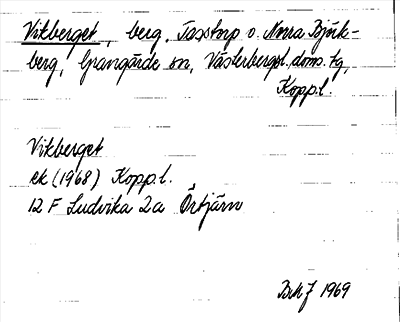 Vitberget, berg. Saxtorp o. Norra Björk-
berg, Grangärde sn, Västerbergsl. doms. tg,
Kopp.l.
Vitberget
ek (1968) Kopp.l.
12 F Ludvika 2a Örtjärn
1969